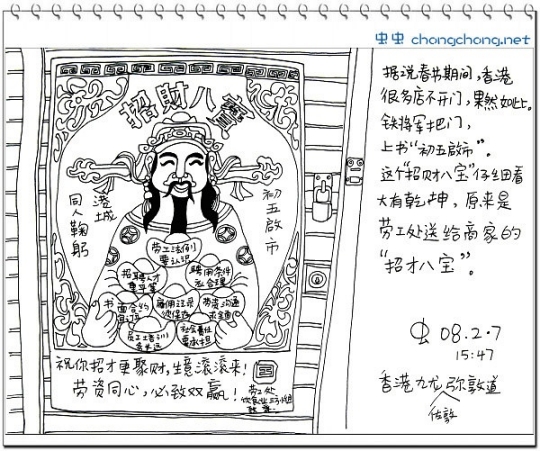 虫虫 chongchong.net
招財八寶
同人鞠躬
港城
初五啟市
劳工法例
要认识
招聘人才
要平等
聘用条件
要合理
书面合约
雇佣记录
须保存
劳资沟通
员工培训
社会责任
要承担
祝你招才更聚财,生意滚滚来!
劳资同心,必致双赢!
劳工处
据说春节期间,香港
很多店不开门,果然如此。
铁将军把门,
上书“初五啟市”。
这个“招财八宝”仔细看
大有乾坤,原来是
劳工处送给商家的
“招才八宝”。
虫 08.2.7
15:47
香港九龙弥敦道
佐敦